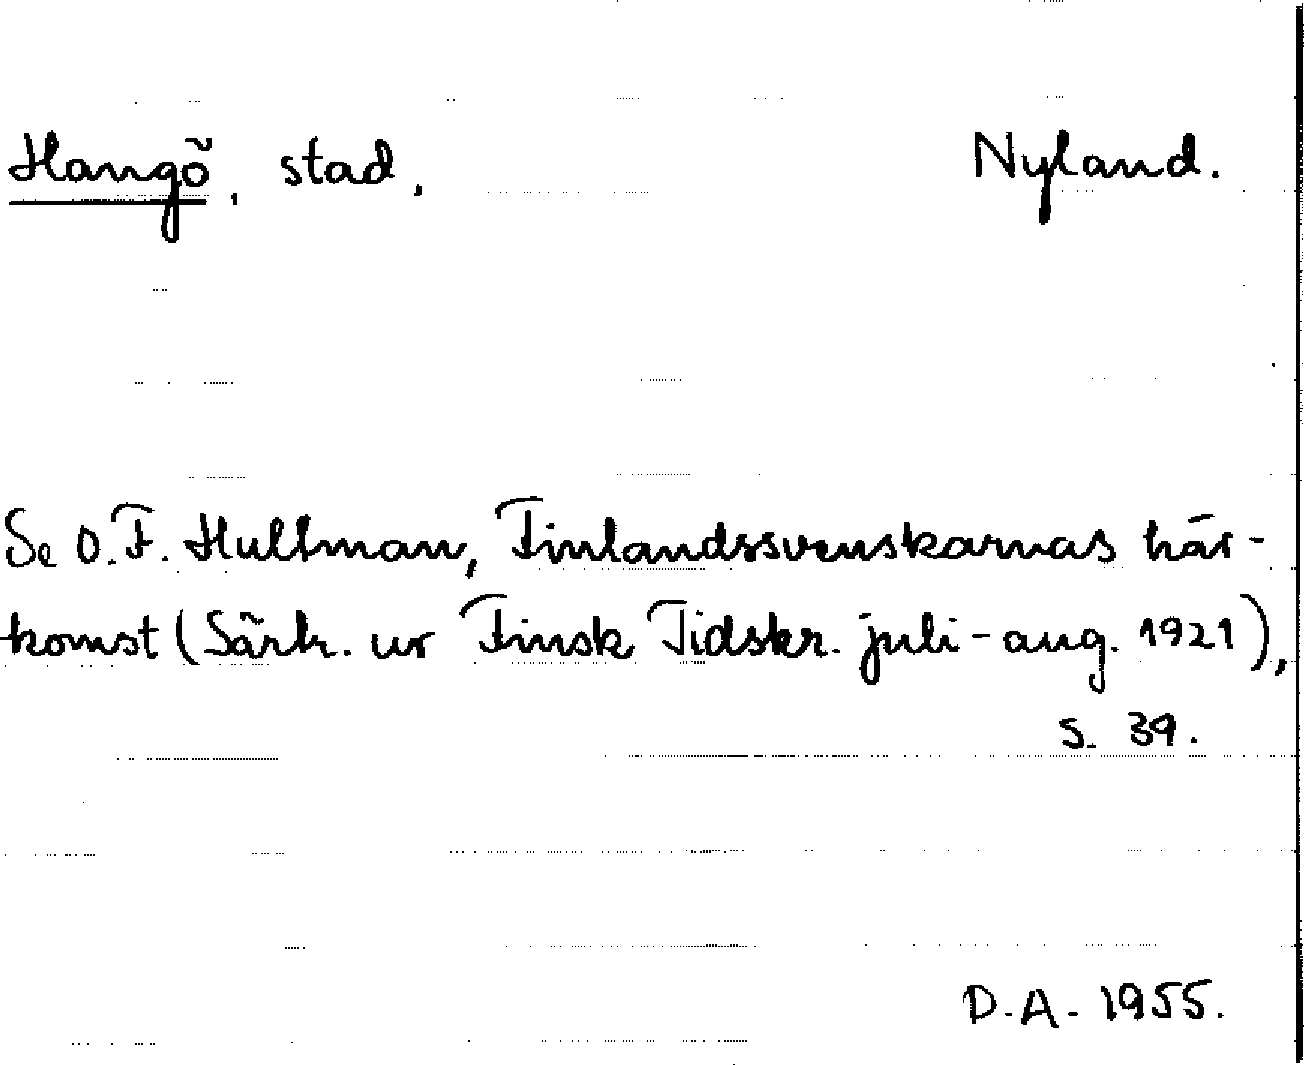 Hangö, stad. Nyland.
Se O.F. Hultman, Finlandssvenskarnas här-
komst (Särtr. ur Finsk Tidskr. juli-aug. 1921),
s. 39.
D.A. 1955.